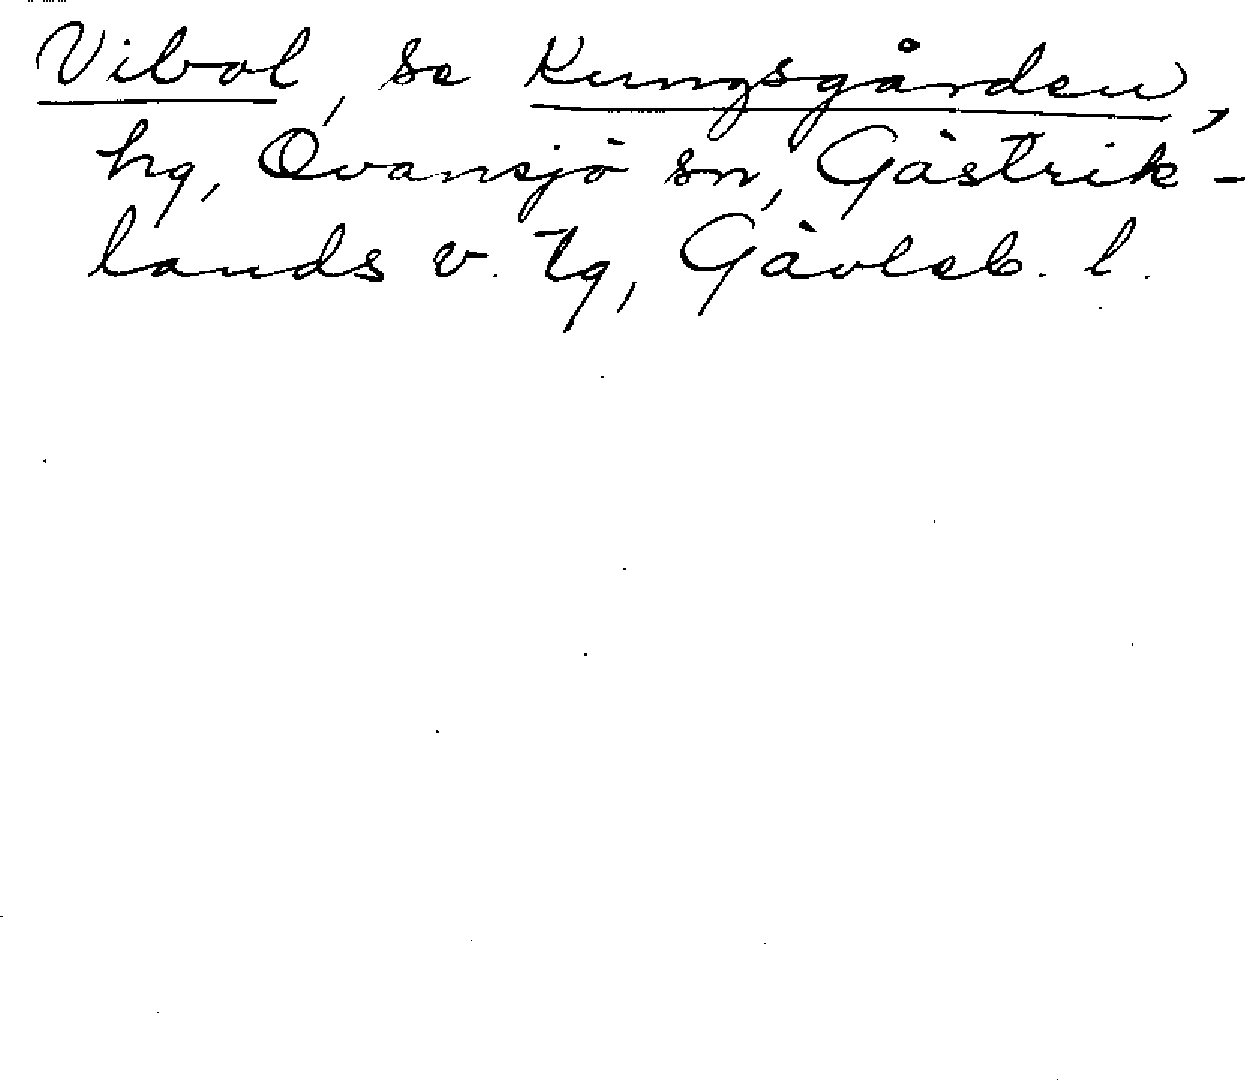 Vibol, se Kungsgården,
hg, Ovansjö sn, Gästrik-
lands v. tg, Gävleb. l.